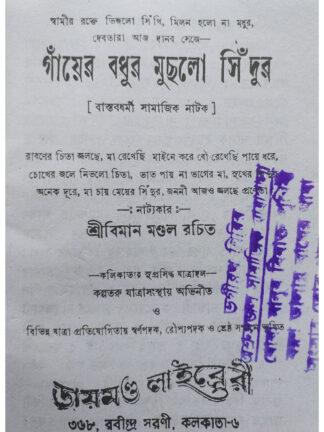 স্বামীর রক্তে ভিজলো সিঁথি, মিলন হলো না মধুর,
দেবতারা আজ দানব সেজে—
গাঁয়ের বধূর মুছলো সিঁদুর
[ বাস্তবধর্মী সামাজিক নাটক ]
রাবণের চিতা জ্বলছে, মা রেখেছি মাইনে করে বৌ রেখেছি পায়ে ধরে,
চোখের জলে নিভলো চিতা, ভাত পায় না ভাগের মা, সুখের
অনেক দূরে, মা চায় মেয়ের সিঁদুর, জননী আজও জ্বলছে প্রণেতা
—: নাট্যকার :—
শ্রীবিমান মণ্ডল রচিত
—কলিকাতার সুপ্রসিদ্ধ যাত্রাদল—
কল্পতরু যাত্রাসংস্থায় অভিনীত
ও
বিভিন্ন যাত্রা প্রতিযোগিতায় স্বর্ণপদক, রৌপ্যপদক ও শ্রেষ্ঠ
ডায়মণ্ড লাইব্রেরী
৩৬৮, রবীন্দ্র সরণী, কলকাতা-৬